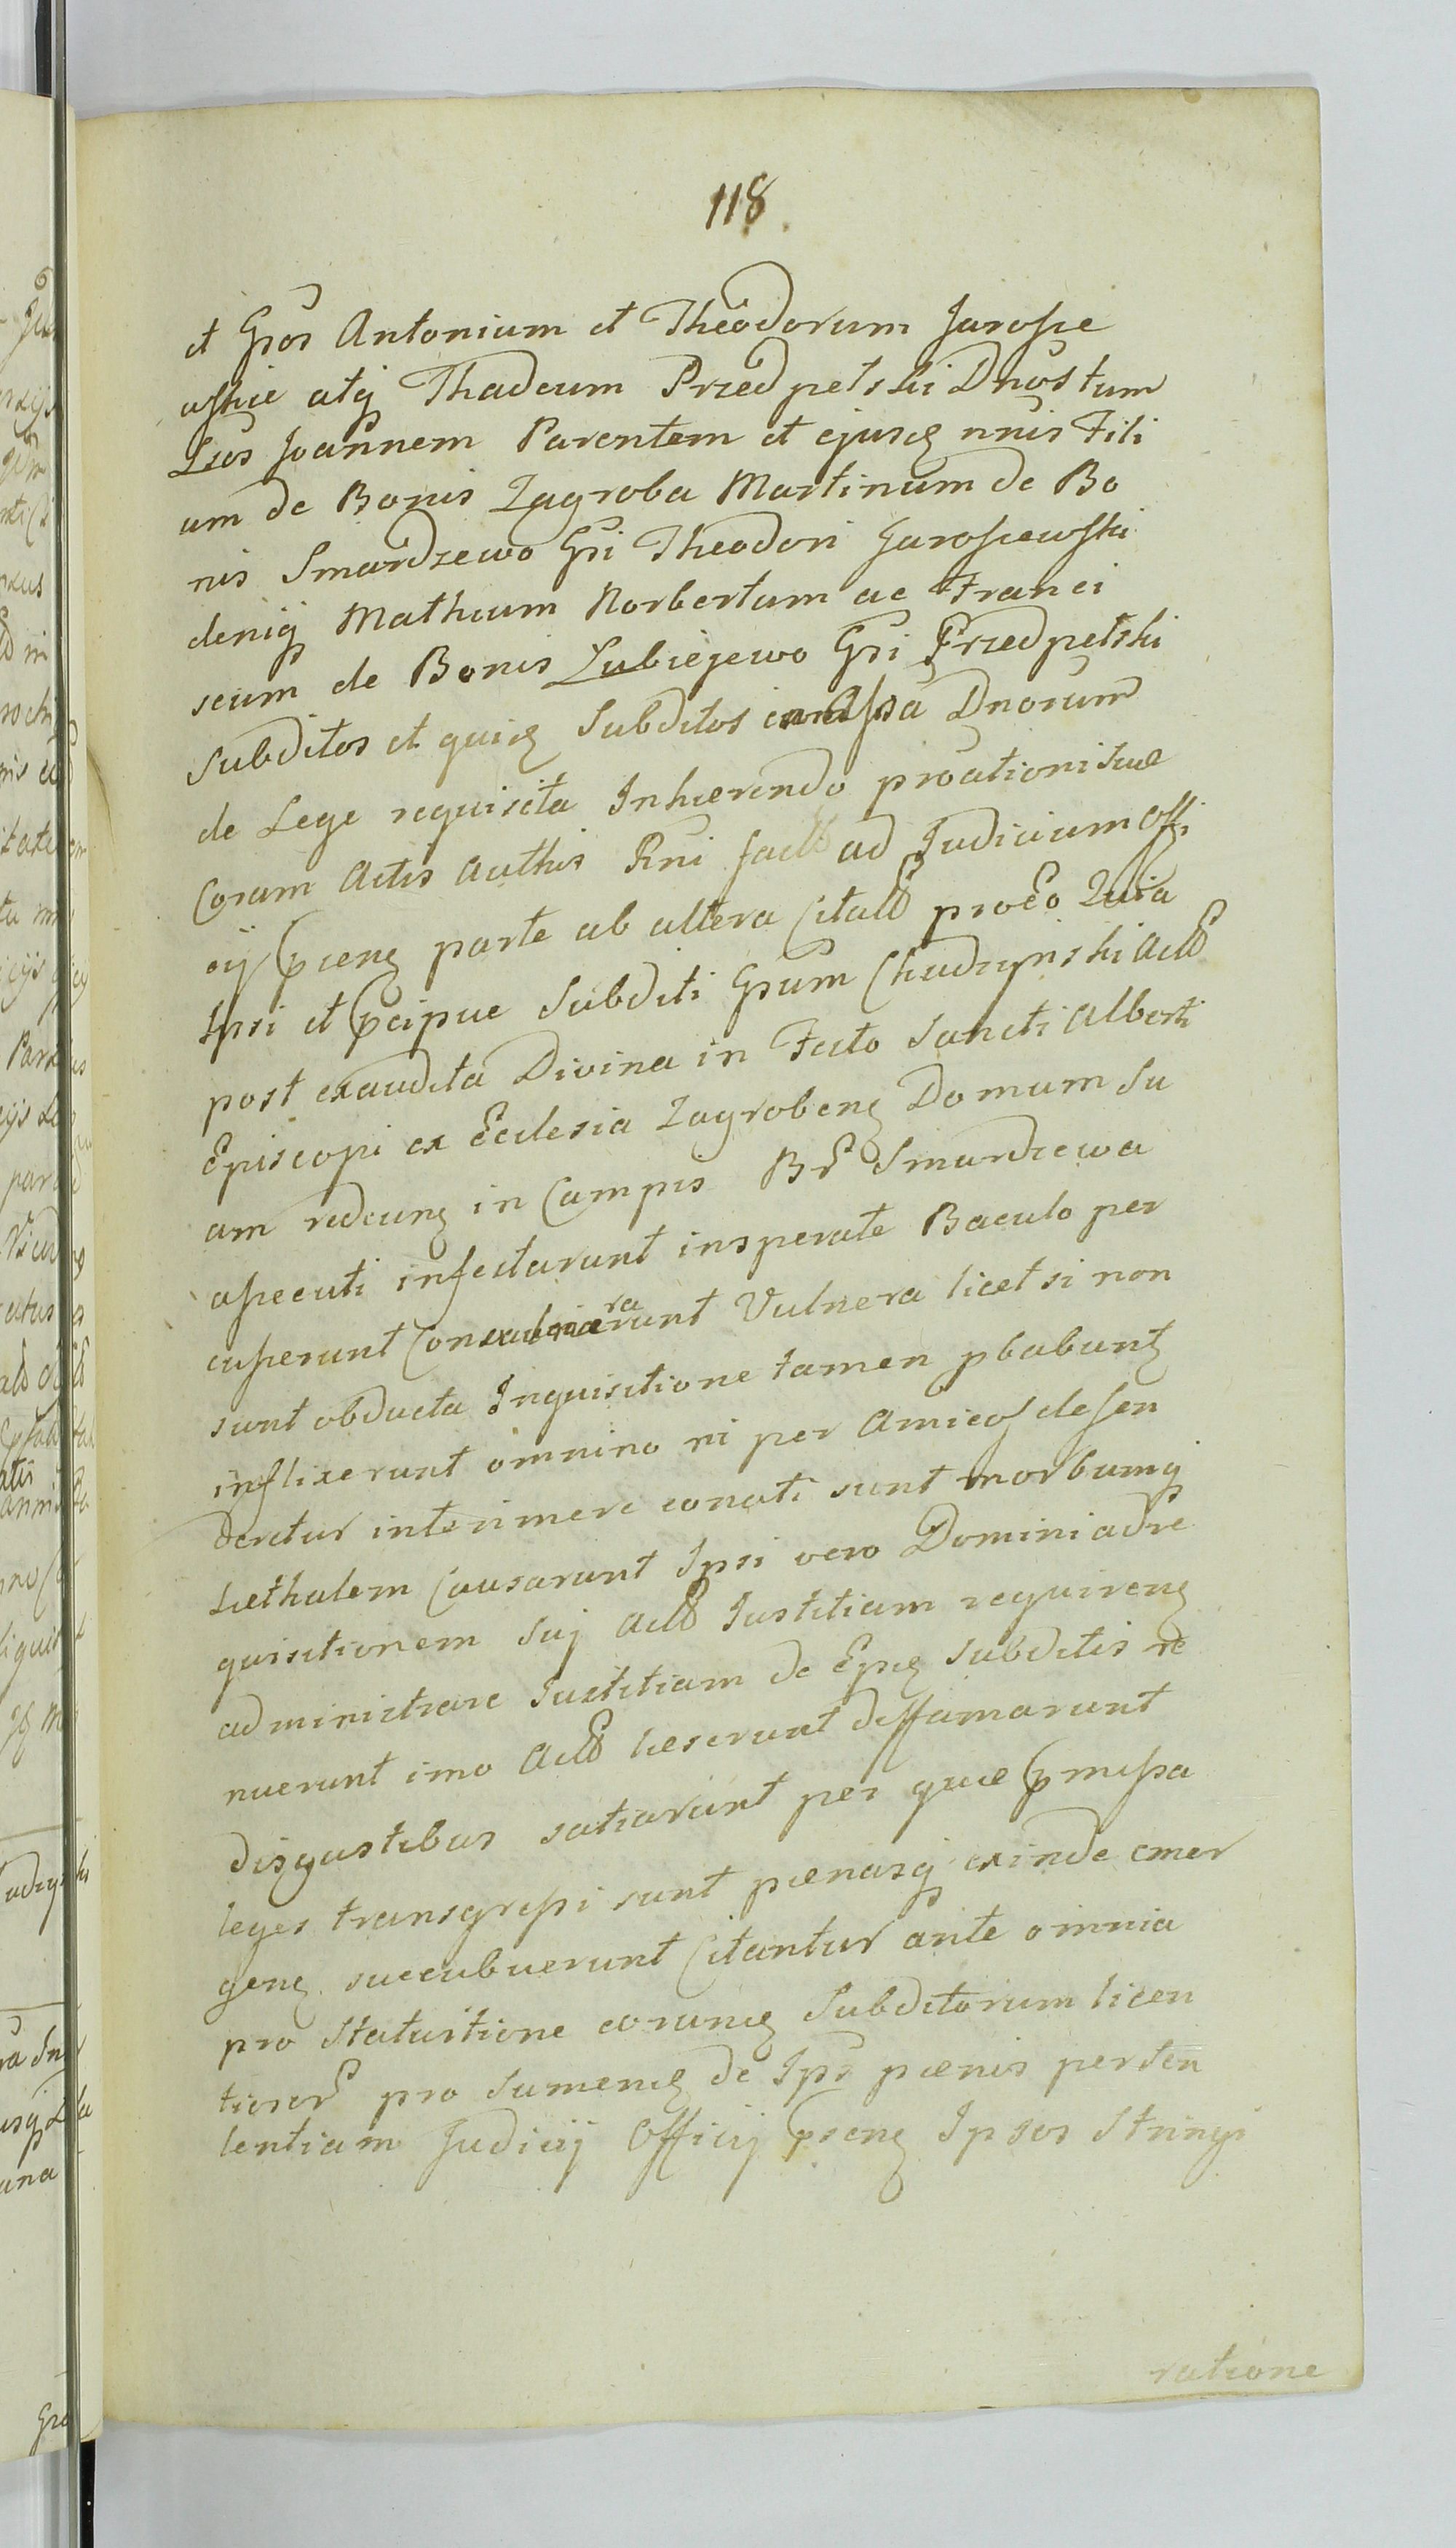 118
et Gsos Antonium et Theodorum Jarosze
wskie atq Thadeum Przedpetski Dnos tum
Lsos Joannem Parentem et ejusd nnis Fili
um de Bonis Zagroba Martinum de Bo
nis Smardzewo Gsi Theodori Jaroszewski
deniq Matheum Norbertum ac Franci
scum de Bonis Lubiejewo Gsi Przedpetski
Subditos et quid Subditos in Assa Dnorum
de Lege requisita Inhærendo proœationi suæ
Coram Actis Authis Rni factæ ad Judicium Offi
cij pseng parte ab altera Citatt pro Eo Quia
Ipsi et pcipue Subditi Gsum Chudzynski Actt
post exaudita Divina in Festo Sancti Alberti
Episcopi ex Ecclesia Zagrobeng Domum Su
am redeung in Campis Br Smardzewa
assecuti insectarunt insperate Baculo per
cusserunt Convulnerarunt Vulnera licet si non
sunt obducta Inquisitione tamen pbabunt
inflixerunt omnino ni per Amicos defen
deretur interimere conati sunt morbumq
Læthalem Causarunt Ipsi vero Domini ad re
quisitionem Suj Actt Justitiam requireng
administrare Justitiam de Epis Subditis re
nuerunt imo Actt læserunt deffamarunt
disgustibus satiarunt per quæ pmissa
leges transgressi sunt pænasq exinde emer
geng succubuerunt Citantur ante omnia
pro Statuitione eorund Subditorum licen
tiosor pro sumend de Ips pænis per Sen
tentiam Judicij Officij pseng Ipsos Stringi
ratione